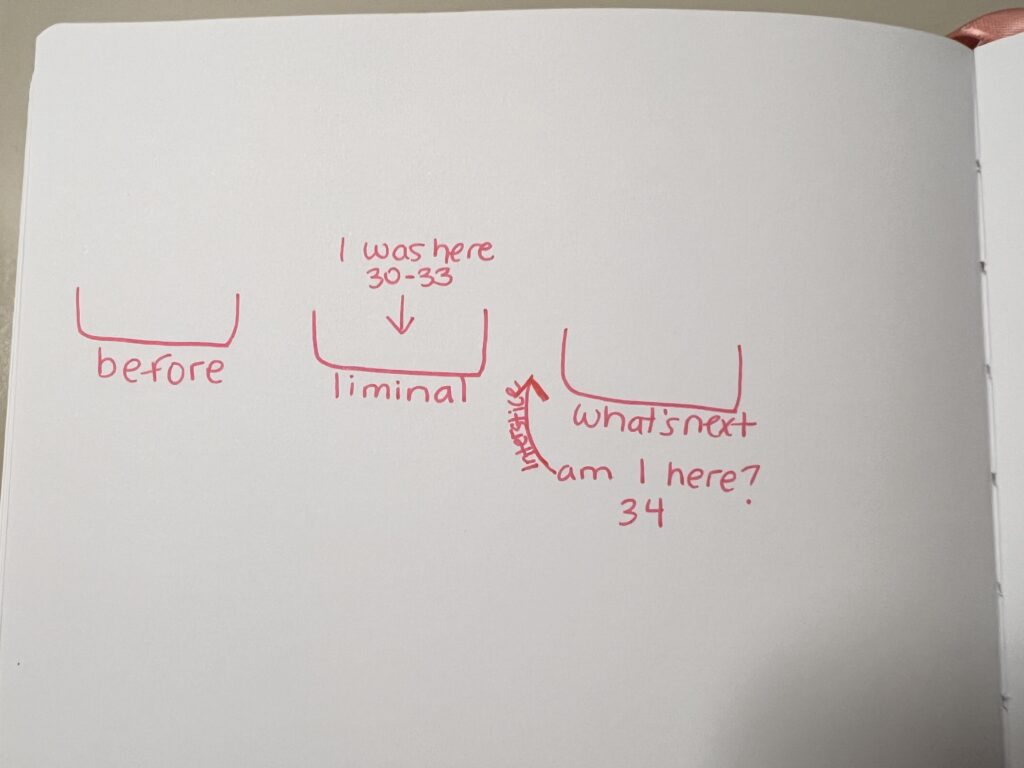 I was here
30-33
before
liminal
interstice
what's next
am I here?
34